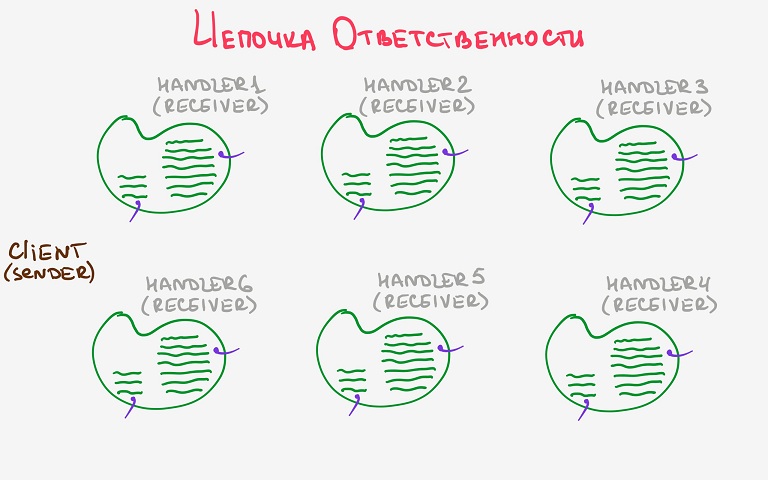 Цепочка Ответственности
HANDLER1
(RECEIVER)
HANDLER2
(RECEIVER)
HANDLER3
(RECEIVER)
CLiENT
(SENDER)
HANDLER6
(RECEIVER)
HANDLER5
(RECEIVER)
HANDLER4
(RECEIVER)